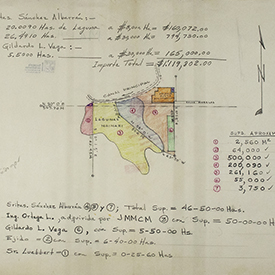 Sánchez Albarrán :-
20.0090 Has de Laguna a $8,000 Ha = $160,072.00
26.4910 Has. a $30,000 Ha = 794,730.00
Gildardo L. Vega :-
5.5000 Has. a $30,000 Ha = 165,000.00
Importe Total = $1.119,802.00
CANAL PRINCIPAL
LAGUNA
DATA APROXIM
① 2,560 M²
② 64,000 ✓
③ 500,000 ✓
④ 200,090 ✓
⑤ 261,160 ✓
⑥ 55,000 ✓
⑦ 3,750 ✓
Sánchez Albarrán ④⑤ y ⑦; Total Sup. = 46-50-00 Has.
Ing. Ortega L. adquirida por JMMCM ③ con Sup. = 50-00-00 Has
Gildardo L. Vega ⑥, con Sup = 5-50-00 Hs
Ejido = ② con Sup = 6-40-00 Hs.
Sr. ① con Sup = 0-25-60 Hs.